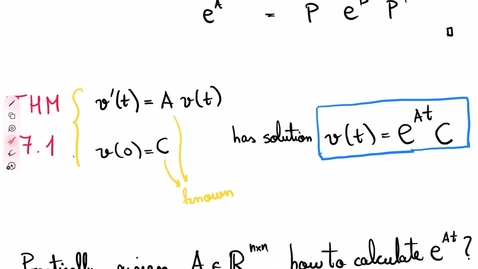 e^A = P e^D P
THM
7.1
v'(t) = A v(t)
v(0) = C
has solution v(t) = e^{At} C
known
Practically, given A ∈ R^{n×n} how to calculate e^{At}?